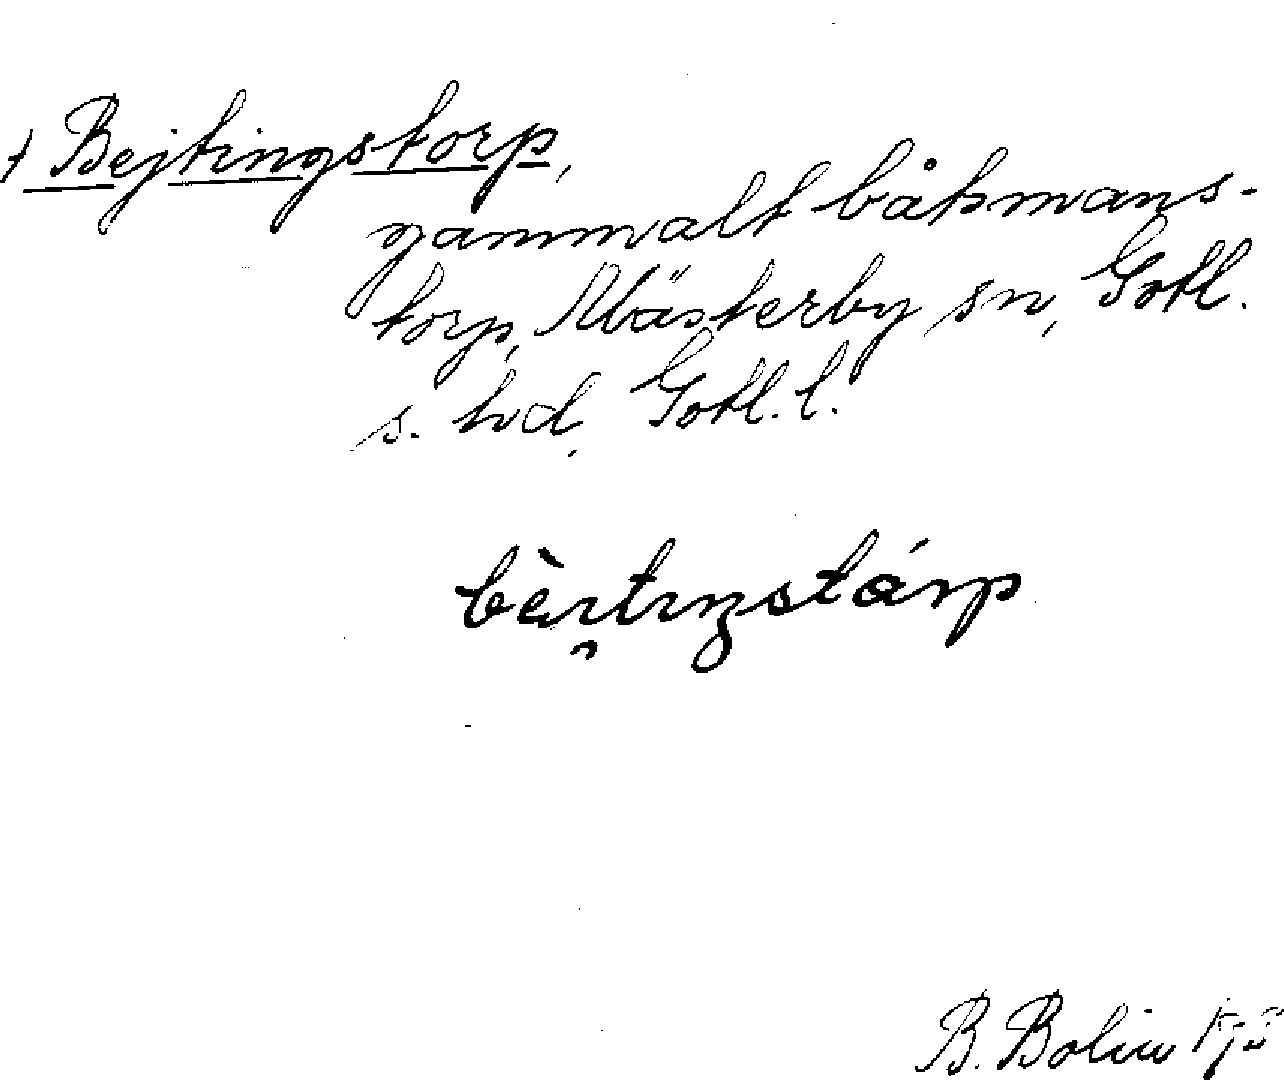 † Bejtingstorp,
gammalt båtsmans-
torp, Mästerby sn, Gotl.
s. hd, Gotl. l.
B. Bolin